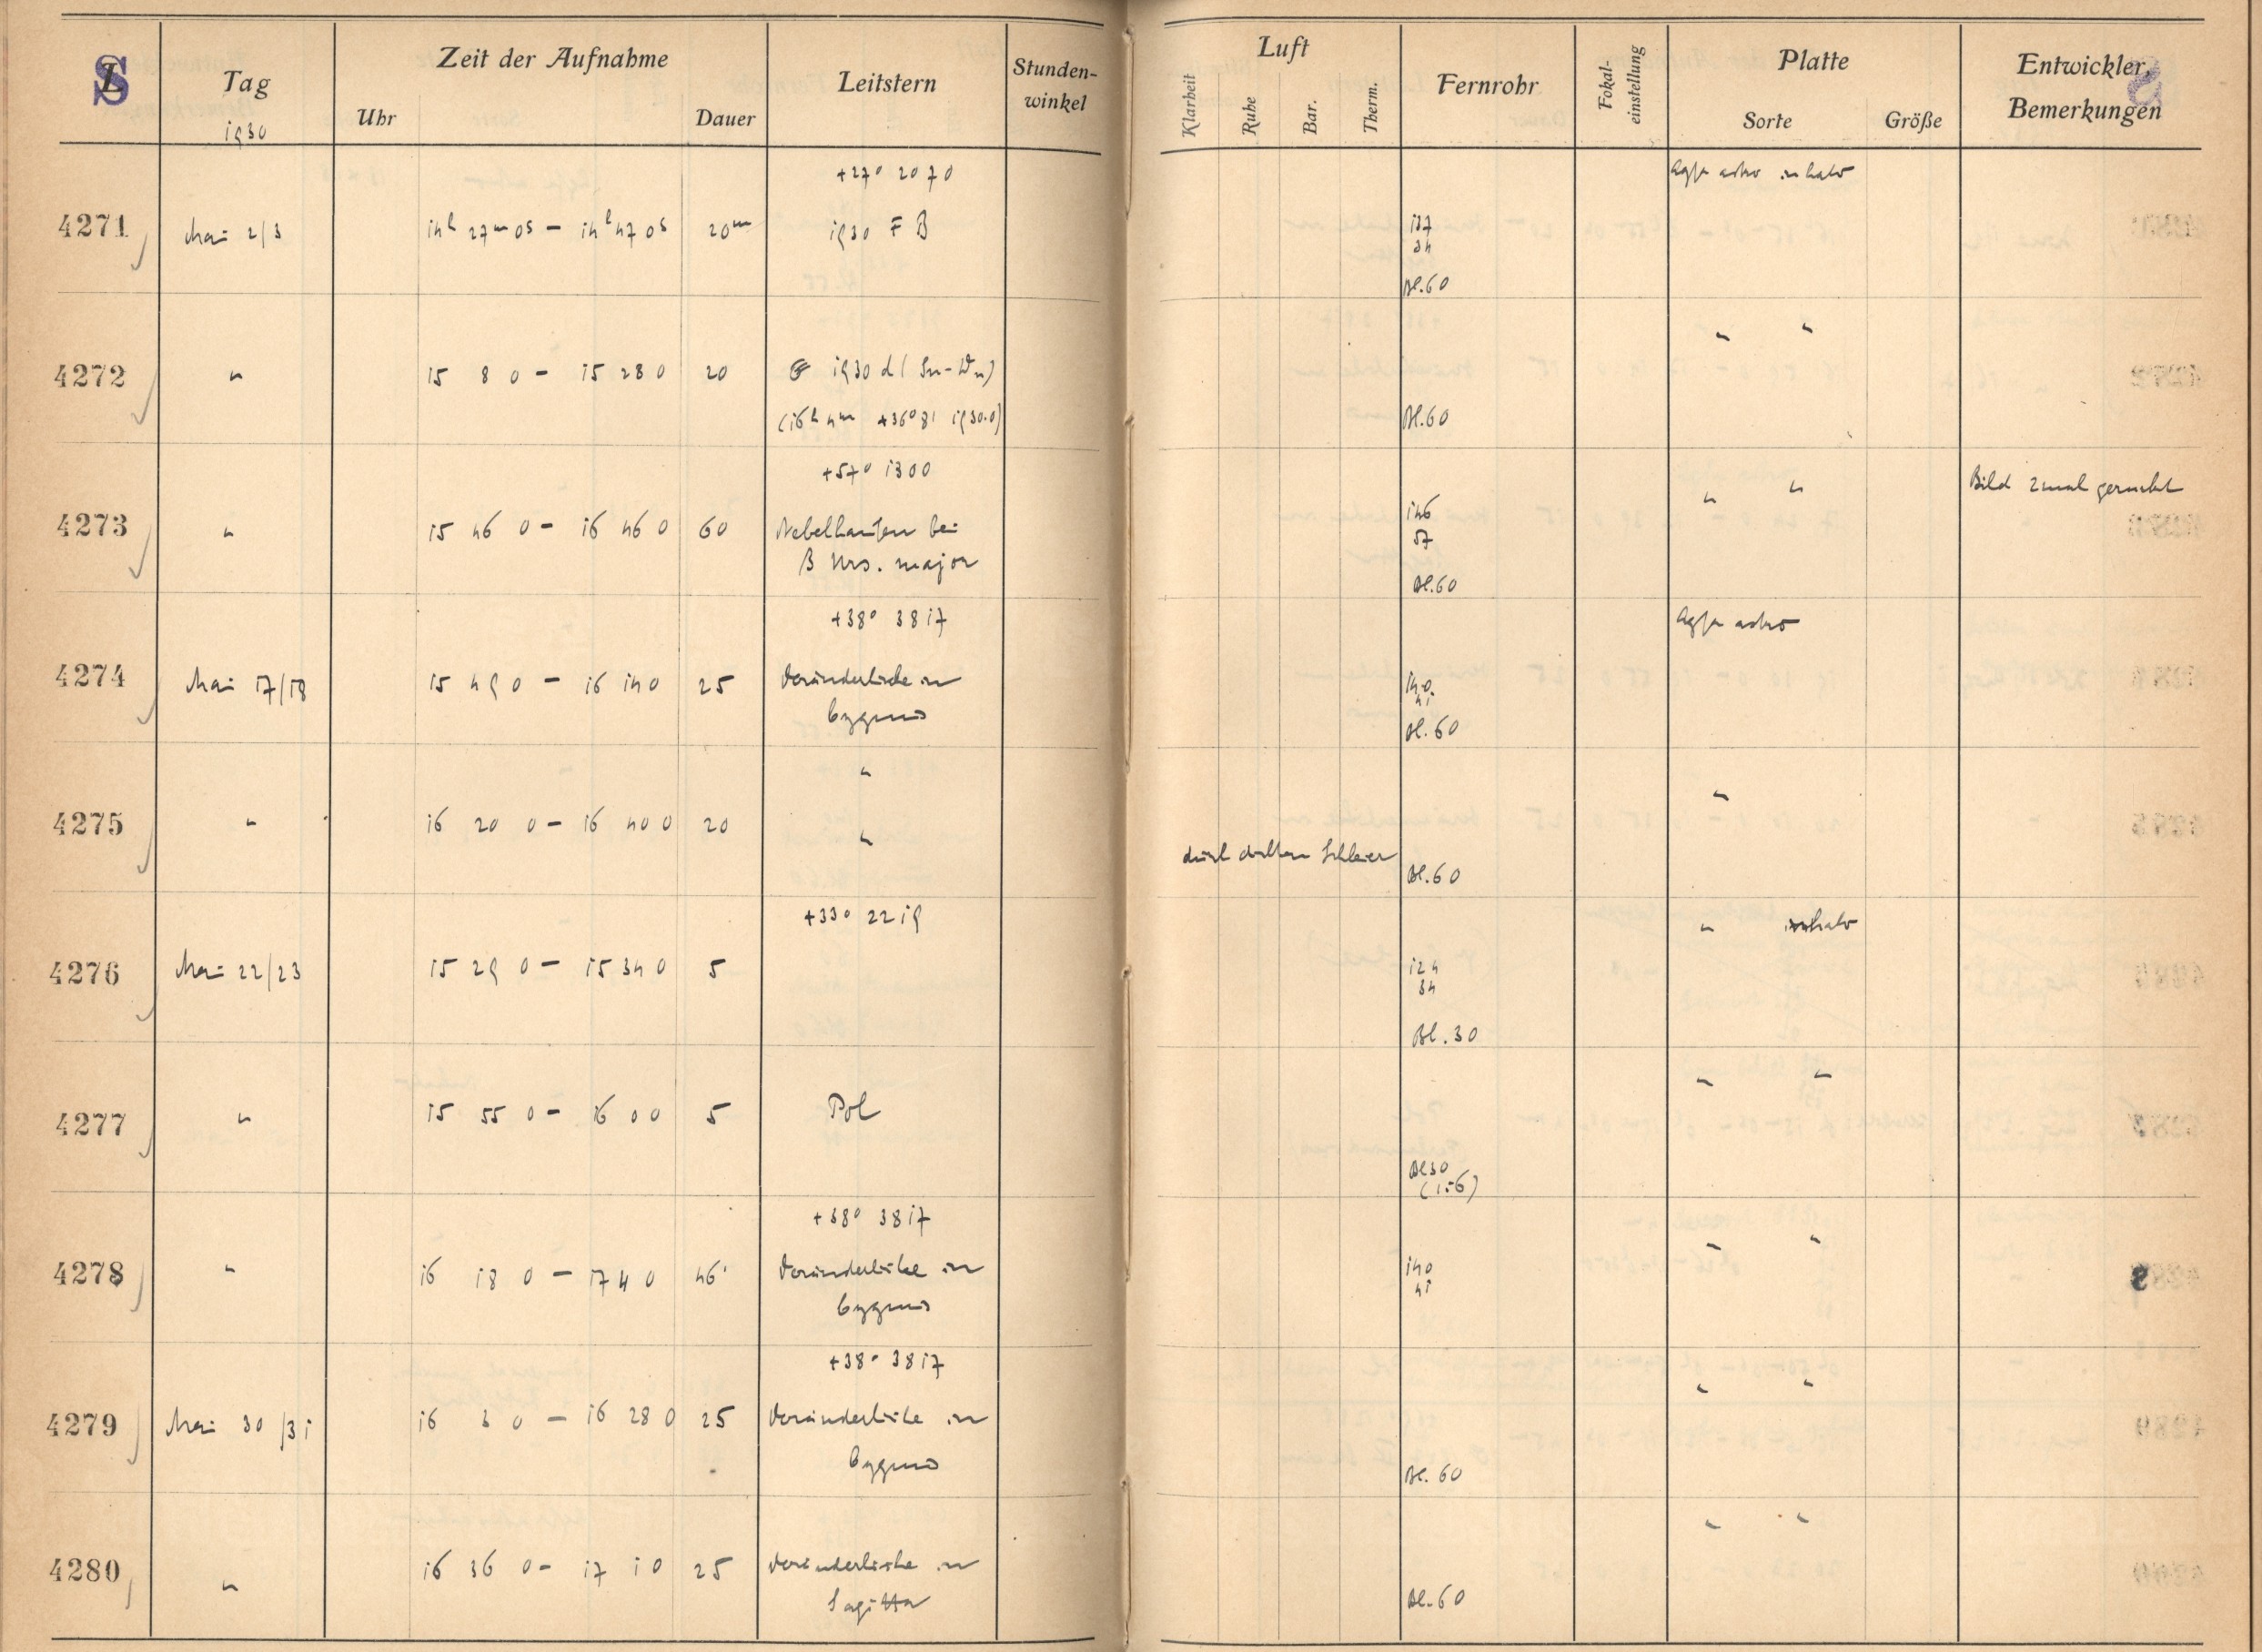 S
Tag
1930
Zeit der Aufnahme
Uhr
Dauer
Leitstern
Stunden-
winkel
Luft
Klarheit
Ruhe
Bar.
Therm.
Fernrohr
Fokal-
einstellung
Platte
Sorte
Größe
Entwickler
Bemerkungen
+27° 2070
Agfa astro inhalo
4271 Mai 2/3 14h 27m 0s – 14h 47 0s 20m 1930 F B 137
34
Bl. 60
" "
4272 " 15 8 0 – 15 28 0 20 1930 d (Sn-Wn)
(16h 4m +36°8' 1930.0) Bl. 60
+57° 1300
" " Bild 2mal gerückt
4273 " 15 46 0 – 16 46 0 60 Nebelhaufen bei 146
57
β Urs. major
Bl. 60
+38° 3817
Agfa astro
4274 Mai 17/18 15 49 0 – 16 14 0 25 Veränderliche in 140
41
Cygnus Bl. 60
"
"
4275 " 16 20 0 – 16 40 0 20 "
Schleier Bl. 60
+33° 2219
" inhalo
4276 Mai 22/23 15 29 0 – 15 34 0 5 124
34
Bl. 30
" "
4277 " 15 55 0 – 16 0 0 5 Pol
Bl 30
(1:6)
+38° 3817
" "
4278 " 16 18 0 – 17 4 0 46 Veränderliche in 140
41
Cygnus
+38° 3817
" "
4279 Mai 30/31 16 3 0 – 16 28 0 25 Veränderliche in
Cygnus Bl. 60
" "
4280 " 16 36 0 – 17 1 0 25 Veränderliche in
Sagitta Bl. 60